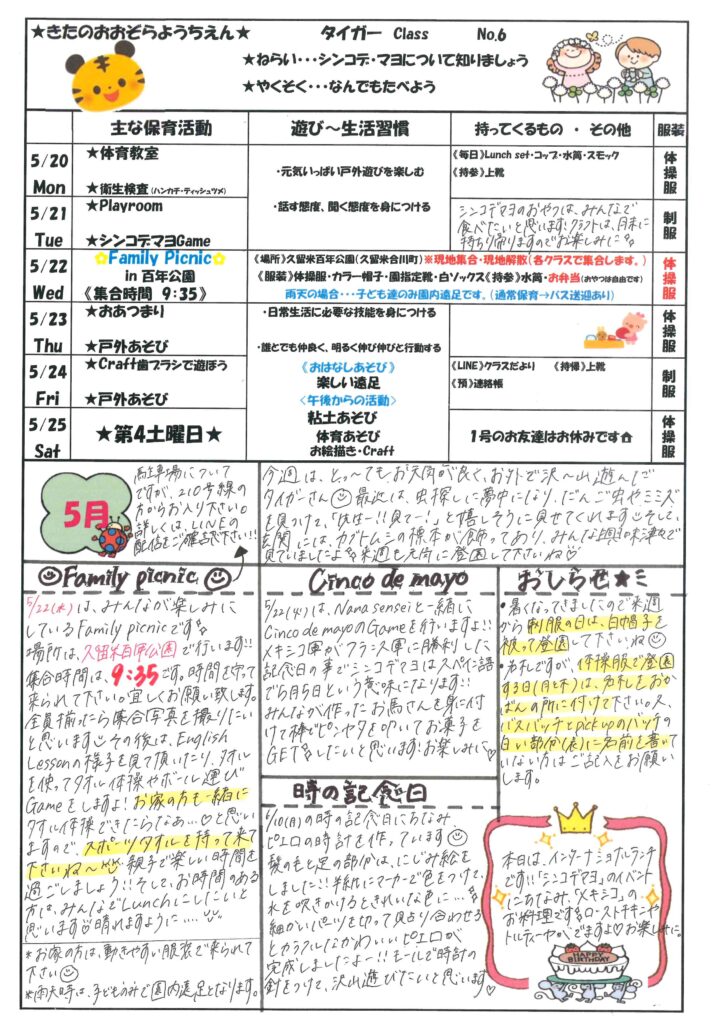 ★きたのおおぞらようちえん★
タイガー Class No.6
★ねらい・・・シンコデ・マヨについて知りましょう
★やくそく・・・なんでもたべよう
主な保育活動 遊び～生活習慣 持ってくるもの ・ その他 服装
5/20 Mon
★体育教室
★衛生検査(ハンカチ・ティッシュツメ)
・元気いっぱい戸外遊びを楽しむ
《毎日》Lunch set・コップ・水筒・スモック
《持参》上靴
体操服
5/21 Tue
★Playroom
★シンコデマヨGame
・話す態度、聞く態度を身につける
シンコデマヨのおやつは、みんなで
食べたいと思います。クラフトは、月末に
持ち帰りますのでお楽しみに
制服
5/22 Wed
Family Picnic
in 百年公園
《集合時間 9:35》
《場所》久留米百年公園(久留米合川町)※現地集合・現地解散(各クラスで集合します。)
《服装》体操服・カラー帽子・園指定靴・白ソックス《持参》水筒・お弁当(おやつは自由です)
雨天の場合・・・子ども達のみ園内遠足です。(通常保育→バス送迎あり)
体操服
5/23 Thu
★おあつまり
★戸外あそび
・日常生活に必要な技能を身につける
・誰とでも仲良く、明るく伸び伸びと行動する
体操服
5/24 Fri
★Craft歯ブラシで遊ぼう
★戸外あそび
《おはなしあそび》
楽しい遠足
<午後からの活動>
《LINE》クラスだより 《持帰》上靴
《預》連絡帳
制服
5/25 Sat
★第4土曜日★
粘土あそび
体育あそび
お絵描き・Craft
1号のお友達はお休みです
体操服
5月
駐車場について
ですが、210号線の
方からお入り下さい。
詳しくは、LINEの
配信をご確認下さい!!
今週は、とっ～てもお天気が良く、お外で沢～山遊んだ
タイガーさん 最近は、虫探しに夢中になり、だんご虫やミミズ
を見つけて、「先生!!見て～!」と嬉しそうに見せてくれます そして、
玄関には、カブトムシの標本が飾ってあり、みんな興味津々で
見ていましたよ 来週も元気に登園して下さいね♡
Family picnic
5/22(水)は、みんなが楽しみに
しているFamily picnicです
場所は、久留米百年公園で行います!!
集合時間は、9:35です。時間を守って
来られて下さい。宜しくお願い致します。
全員揃ったら集合写真を撮りたい
と思います その後は、English
Lessonの様子を見て頂いたり、タオル
を使ってタオル体操やボール運び
Gameをしますよ! お家の方も一緒に
タオル体操できたらなぁ…♡と思い
ますので、スポーツタオルを持って来て
下さいね～ 親子で楽しい時間を
過ごしましょう!! そして、お時間のある
方は、みんなでLunchにしたいと
思います 晴れますように…
*お家の方は、動きやすい服装で来られて
下さい
*雨天時は、子どものみで園内遠足となります。
Cinco de mayo
5/22(火)は、Nana senseiと一緒に
Cinco de mayoのGameを行いますよ!!
メキシコ軍がフランス軍に勝利した
記念日の事でシンコデマヨはスペイン語
で5月5日という意味になります!!
みんなが作ったお馬さんを身に付
けて棒でピニャタを叩いてお菓子を
GETしたいと思います。お楽しみに♡
時の記念日
6/10(月)の時の記念日にちなみ
ピエロの時計を作っています
髪の毛と足の部分は、にじみ絵を
しました!! 半紙にマーカーで色をつけて、
水を吹きかけるときれいな色に…
細かいパーツを切って貼り合わせる
とカラフルなかわいいピエロが
完成しましたよー!! モールで時計の
針をつけて、沢山遊びたいと思います♡
おしらせ★ミ
・暑くなってきましたので来週
から制服の日は、白帽子を
被って登園して下さいね
・名札ですが、体操服で登園
する日(月と木)は、名札をおか
ばんの所に付けて下さい。又、
バスバッチとpick upのバッチの
白い部分(表)に名前を書いて
いない方はご記入をお願い
します。
本日は、インターナショナルランチ
です!!「シンコデマヨ」のイベント
にちなみ、「メキシコ」の
お料理です ローストチキンや
トルティーヤ、ですよ♡ お楽しみに。
HAPPY BIRTHDAY